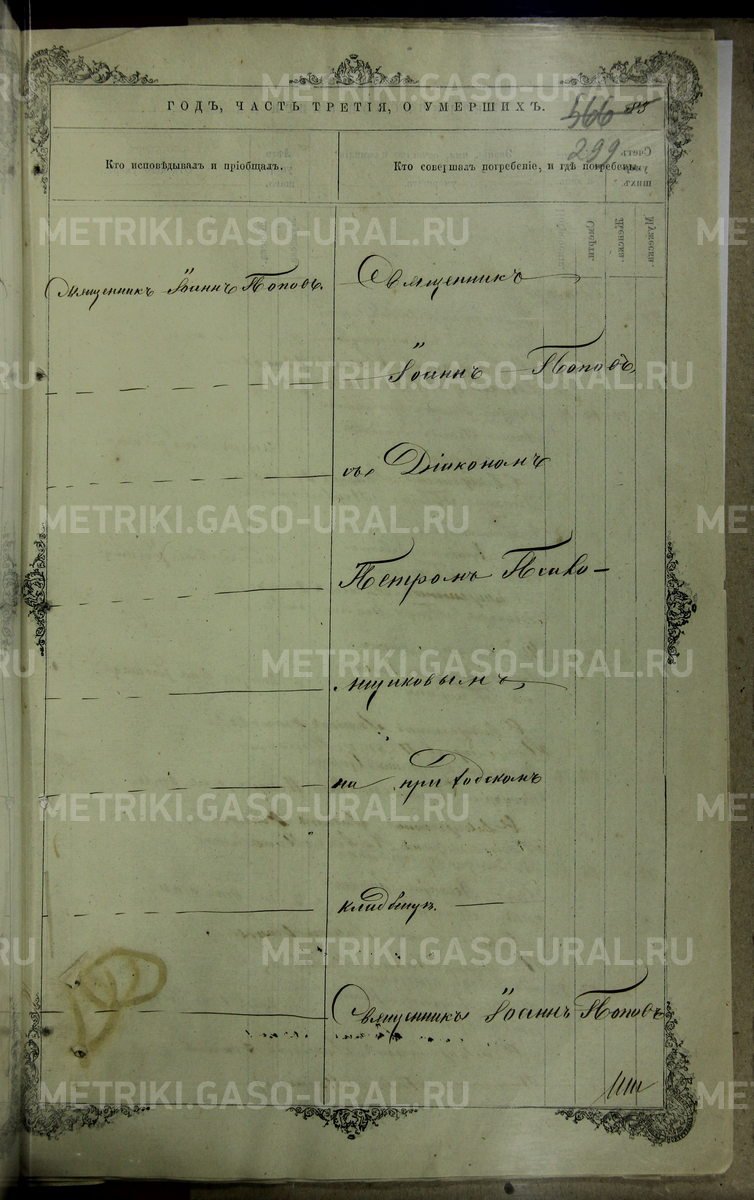 ГОДЪ, ЧАСТЬ ТРЕТІЯ, О УМЕРШИХЪ. 566 85
299
Кто исповѣдывалъ и пріобщалъ. Кто совершалъ погребеніе, и гдѣ погребены.
Священникъ Іоаннъ Поповъ. Священникъ
Іоаннъ Поповъ,
съ Діакономъ
Петромъ
на приходскомъ
кладбищѣ.
Священникъ Іоаннъ Поповъ
METRIKI.GASO-URAL.RU